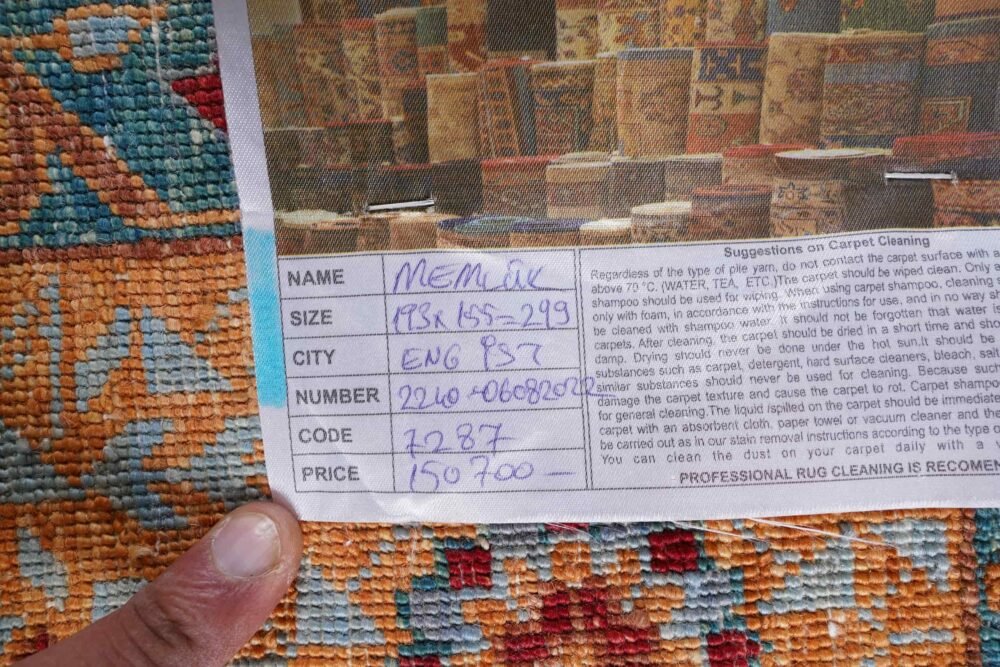 NAME MEMLÜK
SIZE 193x155=299
CITY ENG İST
NUMBER 2240-06082022
CODE 7287-
PRICE 150700-
Suggestions on Carpet Cleaning
Regardless of the type of pile yarn, do not contact the carpet surface with a
above 70 °C. (WATER, TEA, ETC.)The carpet should be wiped clean. Only
shampoo should be used for wiping. When using carpet shampoo, cleaning
only with foam, in accordance with the instructions for use, and in no way
be cleaned with shampoo water. It should not be forgotten that water
carpets. After cleaning, the carpet should be dried in a short time and
damp. Drying should never be done under the hot sun.It should be
substances such as carpet, detergent, hard surface cleaners, bleach,
similar substances should never be used for cleaning. Because such
damage the carpet texture and cause the carpet to rot. Carpet
for general cleaning.The liquid spilled on the carpet should be
carpet with an absorbent cloth, paper towel or vacuum cleaner and
be carried out as in our stain removal instructions according to the type
You can clean the dust on your carpet daily with a
PROFESSIONAL RUG CLEANING IS